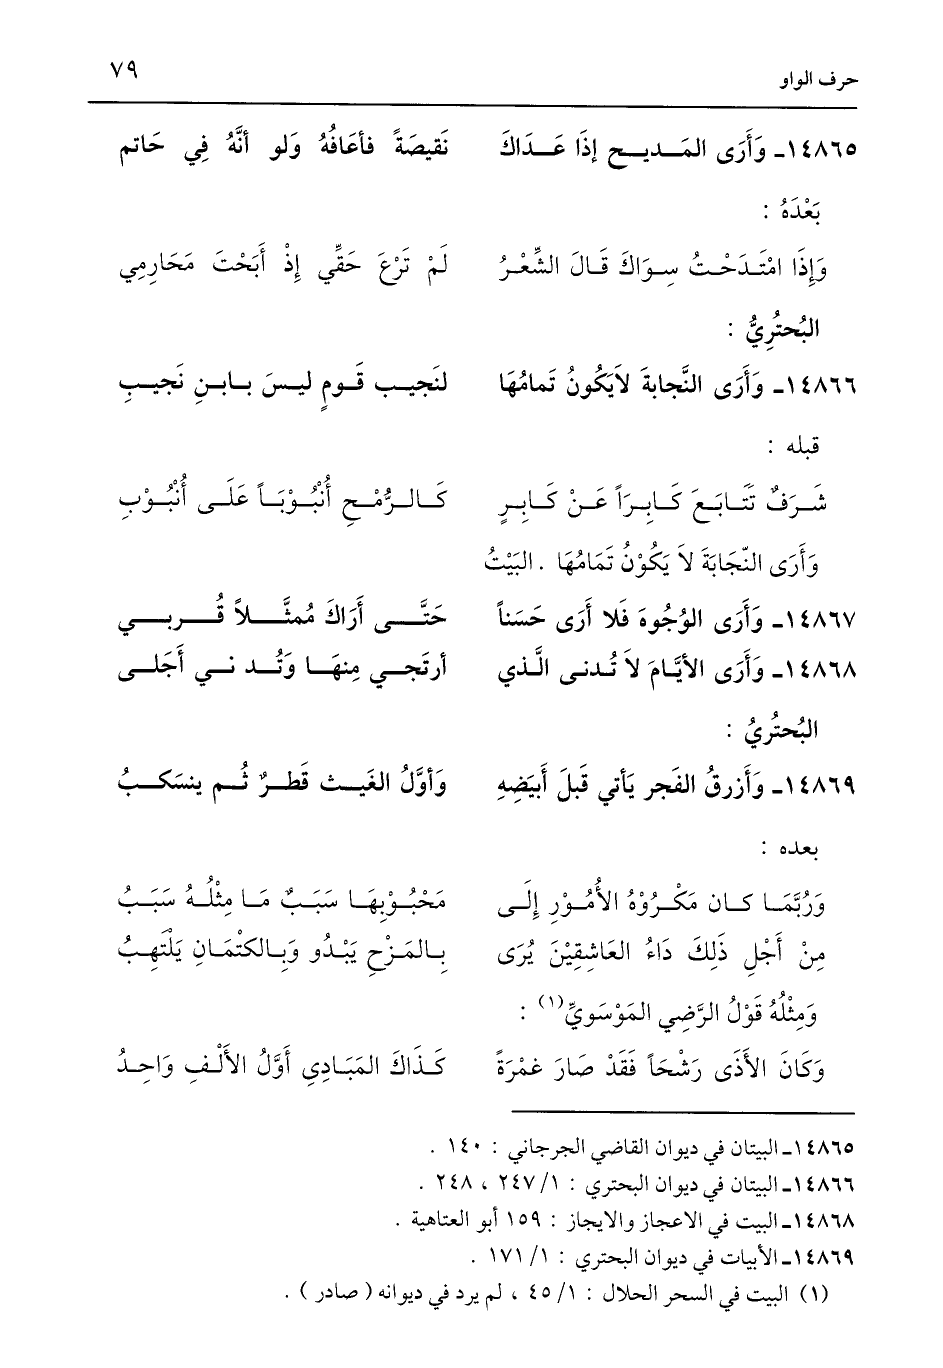 حرف الواو ٧٩
١٤٨٦٥ـ وَأَرَى المَـديـح إذَا عَـدَاكَ نَقيصَةً فأعَافُهُ وَلو أنَّهُ فِي حَاتم
بَعْدَهُ :
وَإِذَا امْتَدَحْتُ سِوَاكَ قَالَ الشِّعْرُ لَمْ تَرْعَ حَقِّي إِذْ أَبَحْتَ مَحَارِمِي
البُحتُرِيُّ :
١٤٨٦٦ـ وَأَرَى النَّجابةَ لاَيَكُونُ تَمامُهَا لنَجيب قَومٍ ليسَ بابنِ نَجيبِ
قبله :
شَرَفٌ تَتَابَعَ كَابِرَاً عَنْ كَابِرٍ كَالرُّمْحِ أُنْبُوْبَاً عَلَى أُنْبُوْبِ
وَأَرَى النّجَابَةَ لاَ يَكُوْنُ تَمَامُهَا . البَيْتُ
١٤٨٦٧ـ وَأَرَى الوُجُوهَ فَلا أَرَى حَسَناً حَتَّى أَرَاكَ مُمثَّلاً قُربي
١٤٨٦٨ـ وَأَرَى الأيَّامَ لاَ تُدنى الَّذي أرتَجي مِنهَا وَتُدني أَجَلى
البُحتُريُ :
١٤٨٦٩ـ وَأَزرقُ الفَجر يَأتي قَبلَ أَبيَضِهِ وَأوَّلُ الغَيث قَطرٌ ثُم ينسَكبُ
بعده :
وَرُبَّمَا كان مَكْرُوْهُ الأُمُوْرِ إِلَى مَحْبُوْبِهَا سَبَبٌ مَا مِثْلُهُ سَبَبُ
مِنْ أَجْلِ ذَلِكَ دَاءُ العَاشِقِيْنَ يُرَى بِالمَزْحِ يَبْدُو وَبِالكتْمَانِ يَلْتَهِبُ
وَمِثْلُهُ قَوْلُ الرَّضِي المَوْسَويِّ(١) :
وَكَانَ الأَذَى رَشْحَاً فَقَدْ صَارَ غمْرَةً كَذَاكَ المَبَادِي أَوَّلُ الأَلْفِ وَاحِدُ
١٤٨٦٥ـ البيتان في ديوان القاضي الجرجاني : ١٤٠ .
١٤٨٦٦ـ البيتان في ديوان البحتري : ١/ ٢٤٧ ، ٢٤٨ .
١٤٨٦٨ـ البيت في الاعجاز والايجاز : ١٥٩ أبو العتاهية .
١٤٨٦٩ـ الأبيات في ديوان البحتري : ١/ ١٧١ .
(١) البيت في السحر الحلال : ١/ ٤٥ ، لم يرد في ديوانه ( صادر ) .